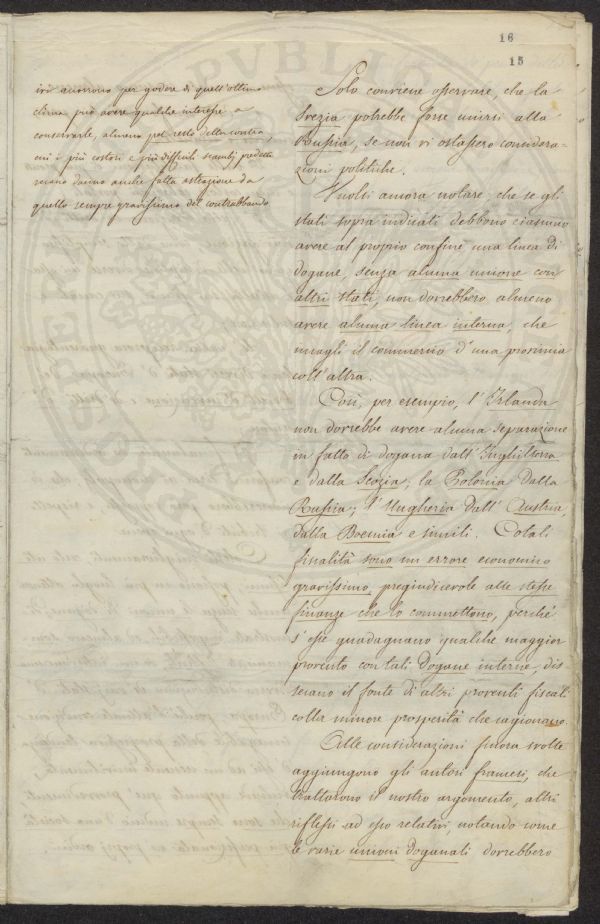 16
15
ivi accorrono per godere di quell'ottimo
clima può avere qualche interesse a
conservarle, almeno pel resto della contea,
cui i più costosi e più difficili scambj predetti
recano danno anche fatta astrazione da
quello sempre gravissimo del contrabbando
Solo conviene osservare, che la
Svezia potrebbe forse unirsi alla
Russia, se non vi ostassero considera-
zioni politiche.
Vuolsi ancora notare che se gli
stati sopra indicati debbono ciascuno
avere al proprio confine una linea di
dogane, senza alcuna unione con
altri stati, non dovrebbero almeno
avere alcuna linea interna, che
incagli il commercio d'una provincia
coll'altra.
Così, per esempio, l'Irlanda
non dovrebbe avere alcuna separazione
in fatto di dogana dall'Inghilterra
e dalla Scozia; la Polonia dalla
Russia; l'Ungheria dall'Austria,
dalla Boemia e simili. Cotali
fiscalità sono un errore economico
gravissimo, pregiudicevole alle stesse
finanze che lo commettono, perché
s'esse guadagnano qualche maggior
provento con tali dogane interne, dis
seccano il fonte di altri proventi fiscali
colla minore prosperità che cagionano.
Alle considerazioni finora svolte
aggiungono gli autori francesi, che
trattarono il nostro argomento, altri
riflessi ad esso relativi, notando come
le varie unioni doganali dovrebbero